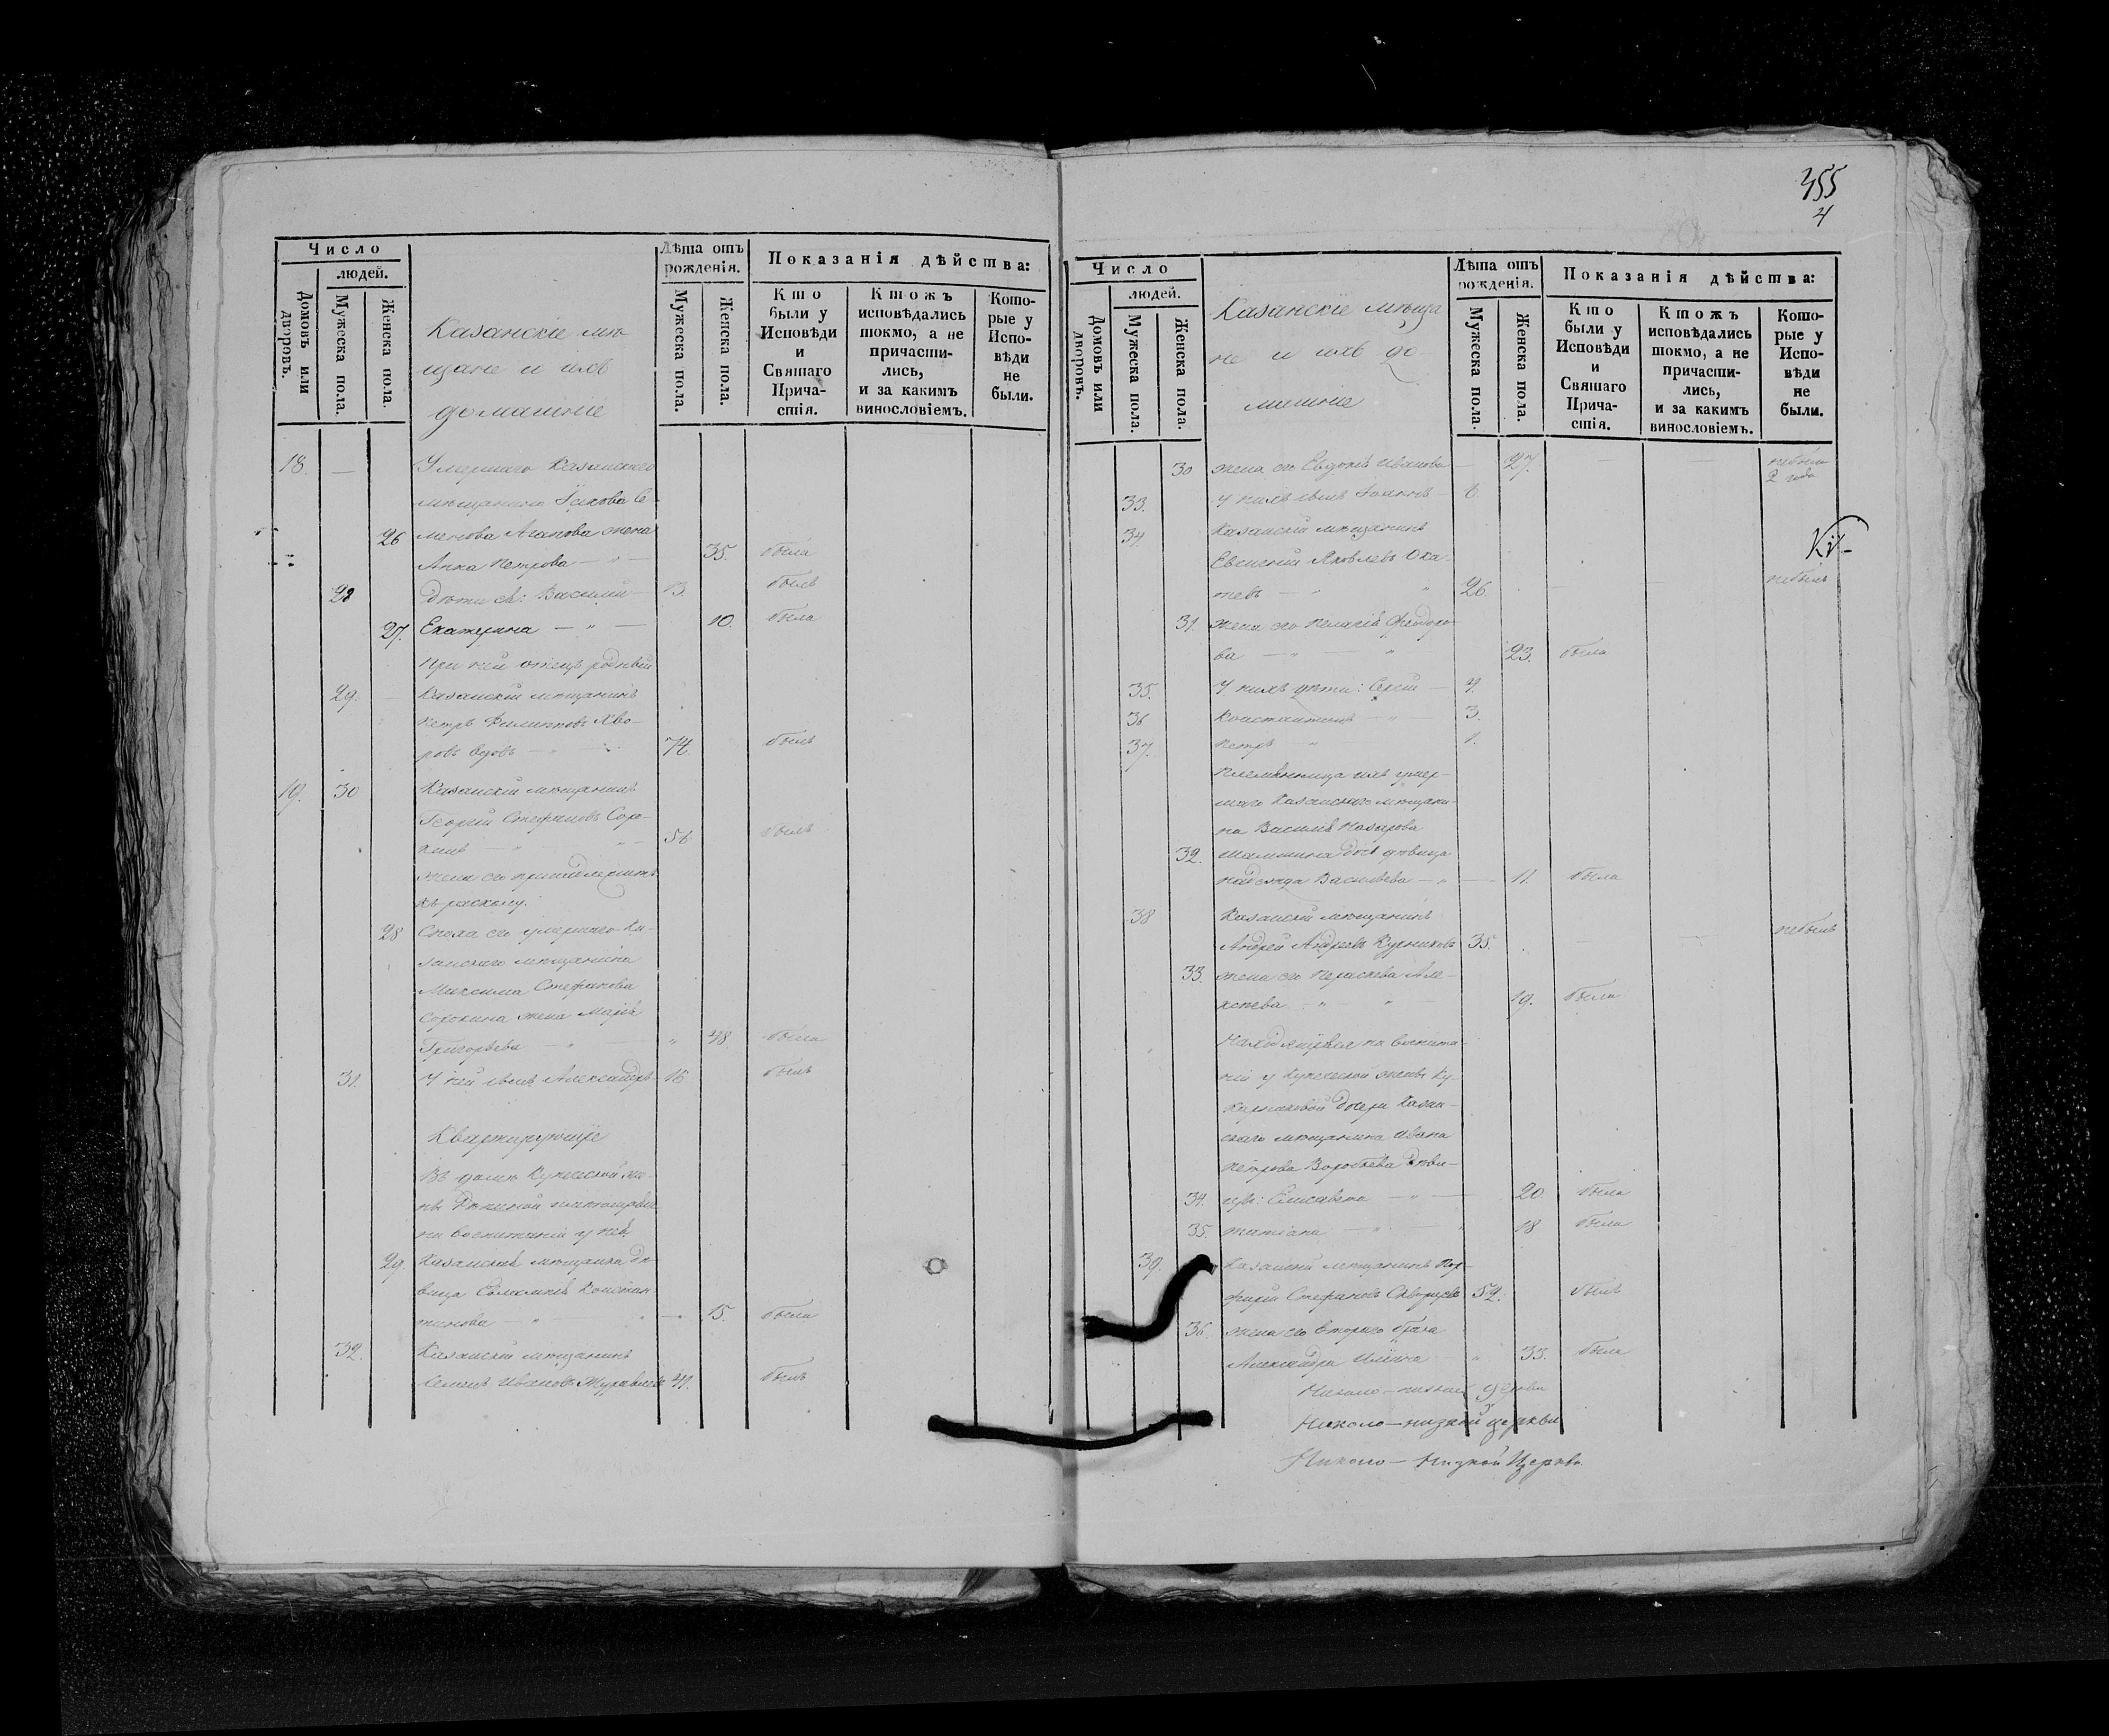 Число
людей.
Домовъ или дворовъ.
Мужеска пола.
Женска пола.
Казанскіе мѣ-
щане и ихъ
домашніе
Лѣта отъ
рожденія.
Мужеска пола.
Женска пола.
Показанія дѣйства:
Кто
были у
Исповѣди
и
Святаго
Прича-
стія.
Ктожъ
исповѣдались
токмо, а не
причасти-
лись,
и за какимъ
винословіемъ.
Кото-
рые у
Испо-
вѣди
не
были.
18. — Умершаго Казанскаго
мѣщанина Іакова Се
26 менова Агапова жена
Анна Петрова — " — 35. была
28 дѣти ея: Василій 13. былъ
27. Екатерина — " — 10. была
При ней отецъ родный
29. Казанскій мѣщанинъ
Петръ Филиповъ
ровъ вдовъ — 74. былъ
19. 30 Казанскій мѣщанинъ
Георгій Стефановъ Соро-
кинъ — " — 56. былъ
жена его
къ расколу.
28 Сноха его умершаго Ка-
занскаго мѣщанина
Максима Стефанова
Сорокина жена Марія
Григорьева — " — 48 была
31. У ней сынъ Александръ 16 былъ
Квартирующіе
Въ домѣ Купеческой же-
ны
на воспитаніи у ней
29. Казанская мѣщанка дѣ
вица Соломія Констан
тинова — " — 15. была
32. Казанскій мѣщанинъ
Ивановъ Журавлевъ 41. былъ
355
4
Число
людей.
Домовъ или дворовъ.
Мужеска пола.
Женска пола.
Казанскіе мѣща
не и ихъ до
машніе
Лѣта отъ
рожденія.
Мужеска пола.
Женска пола.
Показанія дѣйства:
Кто
были у
Исповѣди
и
Святаго
Прича-
стія.
Ктожъ
исповѣдались
токмо, а не
причасти-
лись,
и за какимъ
винословіемъ.
Кото-
рые у
Испо-
вѣди
не
были.
30 жена его Евдокія Иванова 27. — — небыла
2 года
33. У нихъ сынъ Іоаннъ — 6.
34. Казанскій мѣщанинъ
Евгеній Яковлевъ Оха-
невъ — " 26. — — небылъ
31. жена его Пелагія Феодоро-
ва — " — " 23. была
35. У нихъ дѣти: Сергій — 4.
36 Константинъ — " — 3.
37. Петръ " 1.
Племянница ихъ умер-
шаго Казанскаго мѣщани-
на Василія Назарова
32. дочь дѣвица
Надежда Васильева — " — 11. была
38 Казанскій мѣщанинъ
Андрей Андреевъ 35. — — небылъ
33. жена его Параскева Але-
ксѣева — " — " 19. была
Находящіяся на воспита-
ніи у Купеческой жены Ку-
дочери Казан-
скаго мѣщанина Ивана
Петрова Воробьева дѣви-
34. цы: Елисавета — " — 20. была
35. Татіана — " — 18 была
39. Казанскій мѣщанинъ Пор-
фирій Стефановъ 52. былъ
36. жена его втораго брака
Александра Ильина " 33. была
Николо-низкой церкви
Николо-низкой церкви
Николо-Низкой Церкви